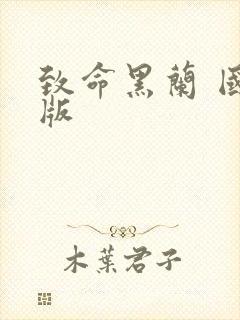 致命黑蘭
版
木葉君子